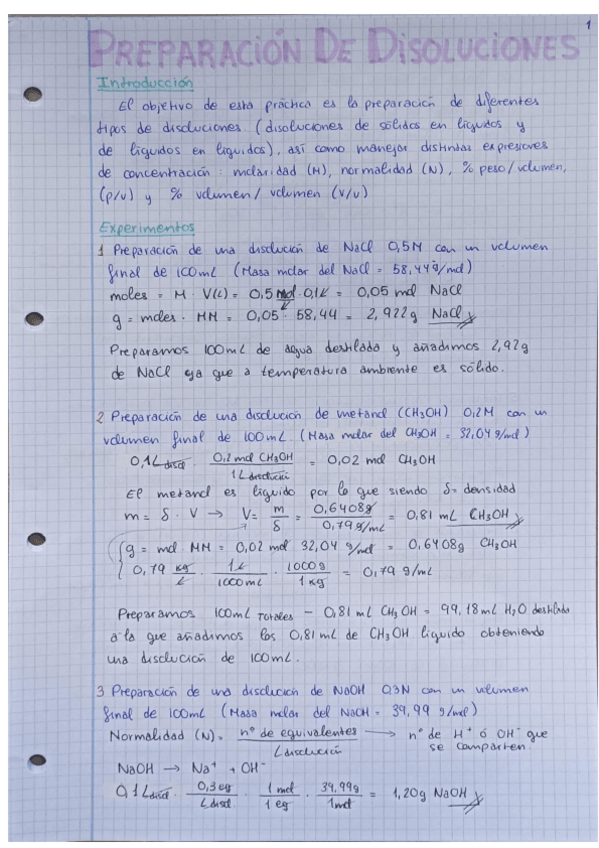 1
PREPARACIÓN DE DISOLUCIONES
Introducción
El objetivo de esta práctica es la preparación de diferentes
tipos de disoluciones (disoluciones de sólidos en líquidos y
de líquidos en líquidos), así como manejar distintas expresiones
de concentración: molaridad (M), normalidad (N), % peso/volumen,
(p/v) y % volumen/volumen (v/v)
Experimentos
1 Preparación de una disolución de NaCl 0,5M con un volumen
final de 100mL (Masa molar del NaCl = 58,44g/mol)
moles = M · V(L) = 0,5 mol/L · 0,1L = 0,05 mol NaCl
g = moles · MM = 0,05 · 58,44 = 2,922g NaCl
Preparamos 100mL de agua destilada y añadimos 2,92g
de NaCl ya que a temperatura ambiente es sólido.
2 Preparación de una disolución de metanol (CH3OH) 0,2M con un
volumen final de 100mL (Masa molar del CH3OH = 32,04 g/mol)
0,1L disol · 0,2 mol CH3OH / 1L disolución = 0,02 mol CH3OH
El metanol es líquido por lo que siendo δ = densidad
m = δ · V → V = m/δ = 0,6408g / 0,79 g/mL = 0,81 mL CH3OH
g = mol · MM = 0,02 mol · 32,04 g/mol = 0,6408g CH3OH
0,79 kg/L · 1L/1000mL · 1000g/1kg = 0,79 g/mL
Preparamos 100mL TOTALES - 0,81 mL CH3OH = 99,18mL H2O destilada
a la que añadimos los 0,81 mL de CH3OH líquido obteniendo
una disolución de 100mL.
3 Preparación de una disolución de NaOH 0,3N con un volumen
final de 100mL (Masa molar del NaOH = 39,99 g/mol)
Normalidad (N) = nº de equivalentes / L disolución → nº de H+ ó OH- que
se comparten.
NaOH → Na+ + OH-
0,1 L disol · 0,3 eq / L disol · 1 mol / 1 eq · 39,99g / 1 mol = 1,20g NaOH